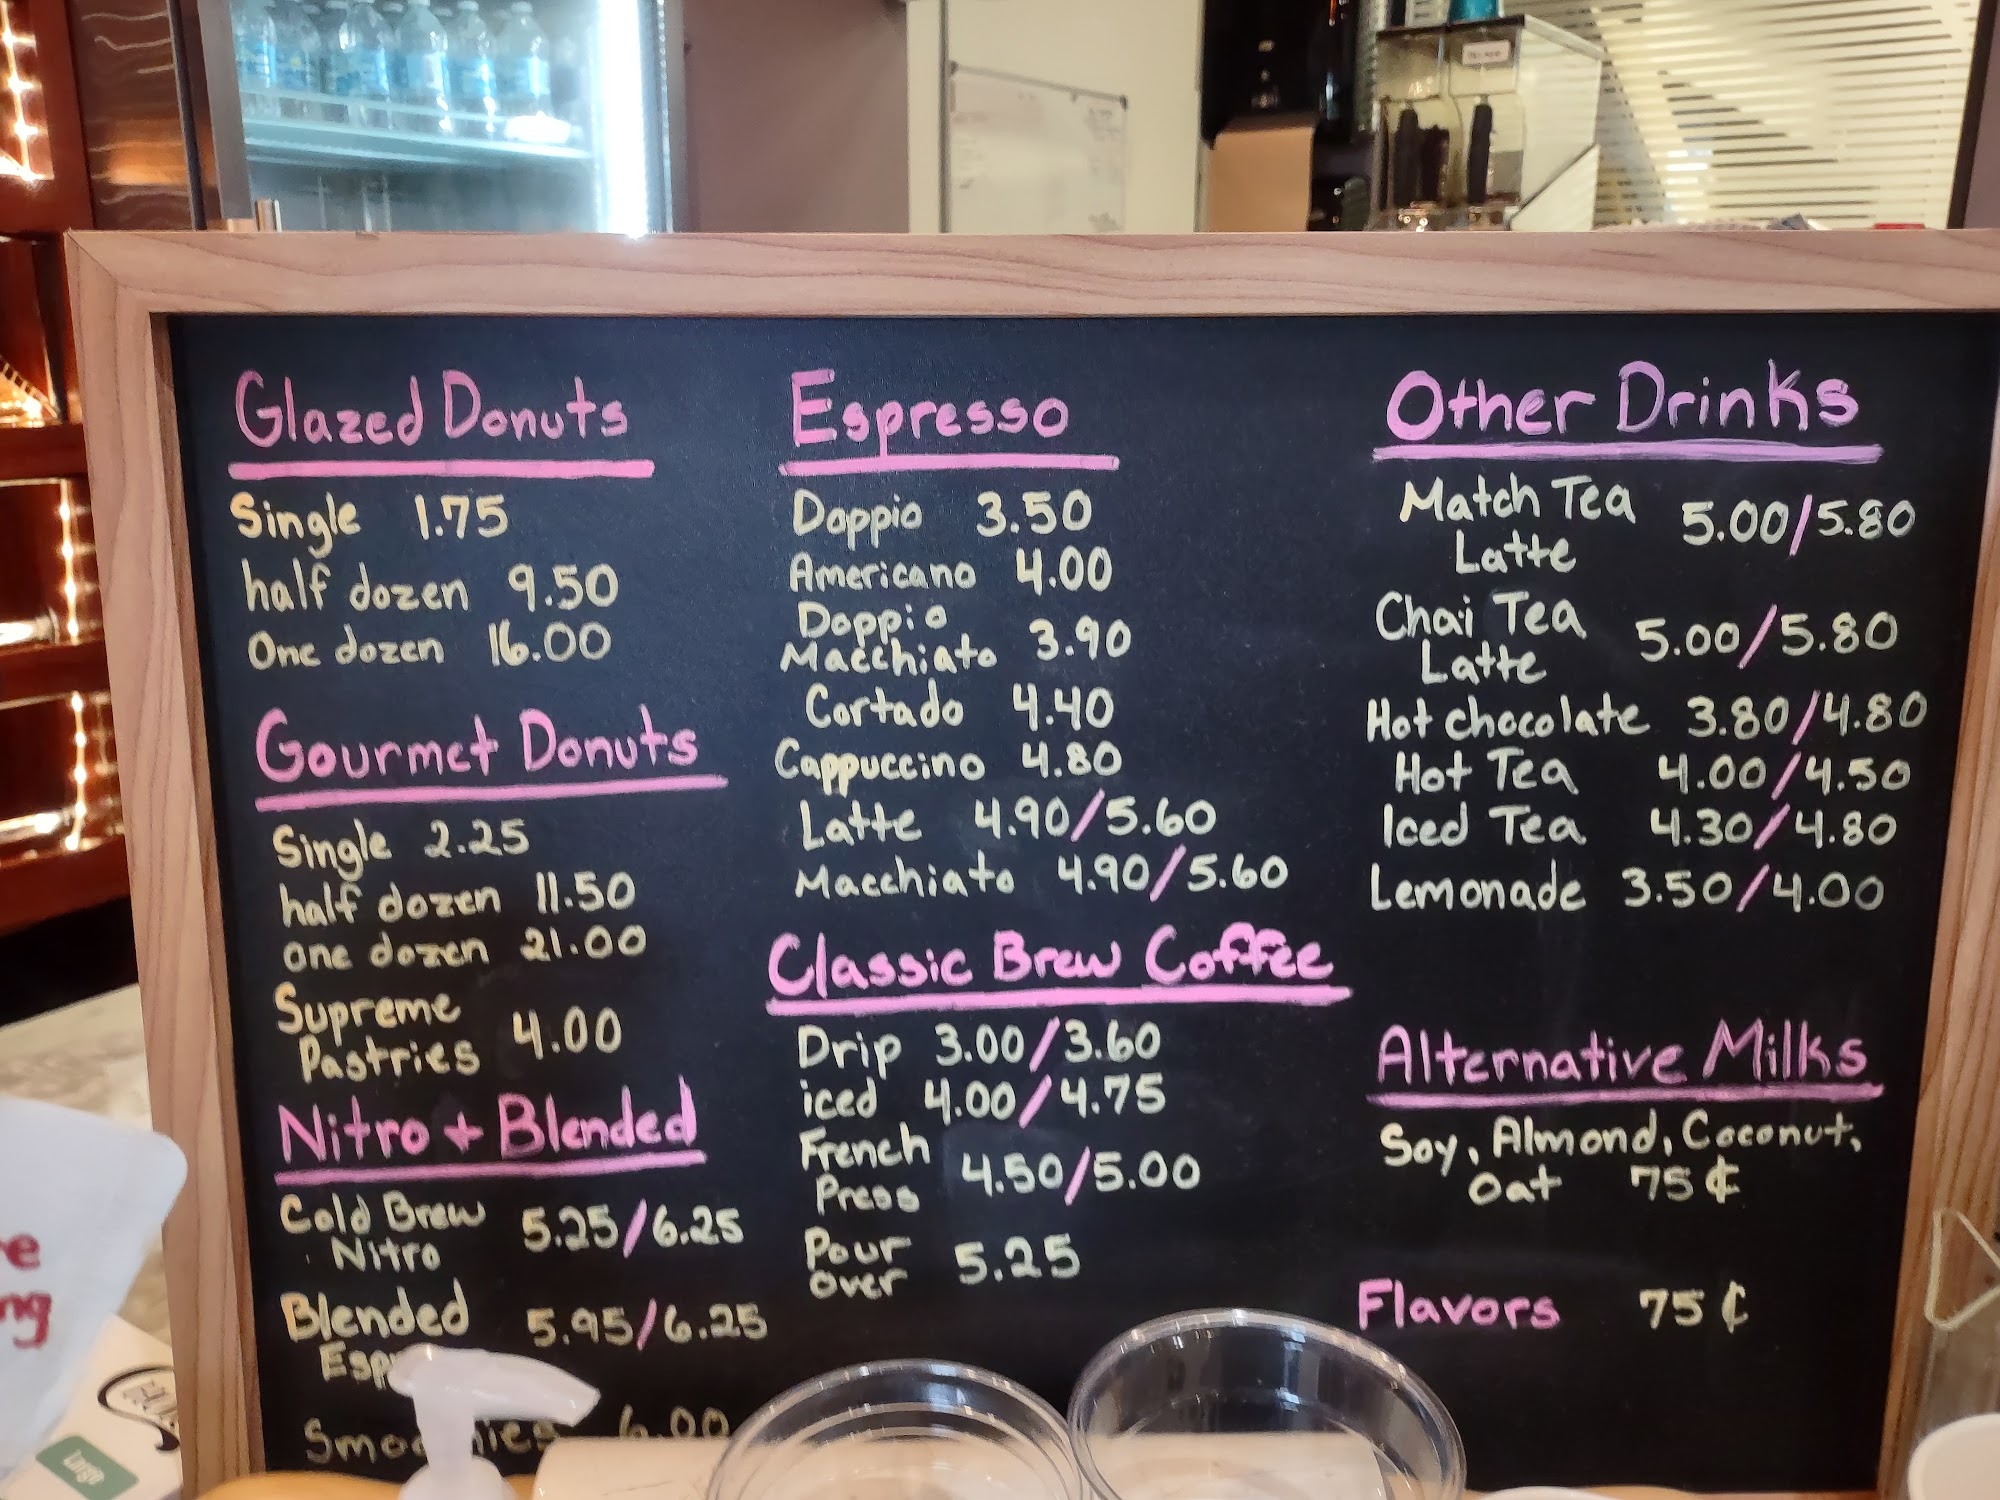 Glazed Donuts
Single 1.75
half dozen 9.50
One dozen 16.00
Gourmet Donuts
Single 2.25
half dozen 11.50
one dozen 21.00
Supreme
Pastries 4.00
Nitro + Blended
Cold Brew
Nitro 5.25/6.25
Blended 5.95/6.25
6.00
Espresso
Doppio 3.50
Americano 4.00
Doppio
Macchiato 3.90
Cortado 4.40
Cappuccino 4.80
Latte 4.90/5.60
Macchiato 4.90/5.60
Classic Brew Coffee
Drip 3.00/3.60
iced 4.00/4.75
French
Press 4.50/5.00
Pour
over 5.25
Other Drinks
Match Tea
Latte 5.00/5.80
Chai Tea
Latte 5.00/5.80
Hot chocolate 3.80/4.80
Hot Tea 4.00/4.50
Iced Tea 4.30/4.80
Lemonade 3.50/4.00
Alternative Milks
Soy, Almond, Coconut,
Oat 75¢
Flavors 75¢
Large